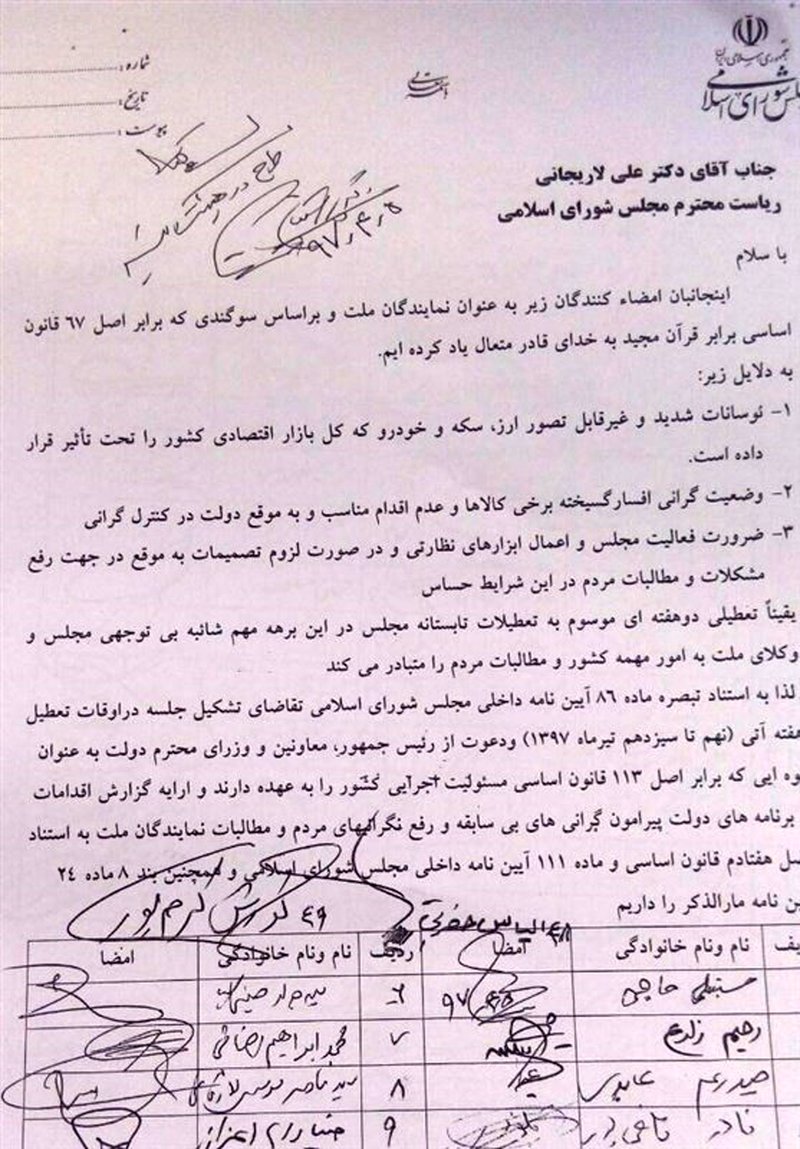 جمهوری اسلامی ایران
مجلس شورای اسلامی
شماره:
تاریخ:
پیوست:
جناب آقای دکتر علی لاریجانی
ریاست محترم مجلس شورای اسلامی
با سلام
اینجانبان امضاء کنندگان زیر به عنوان نمایندگان ملت و براساس سوگندی که برابر اصل ۶۷ قانون
اساسی برابر قرآن مجید به خدای قادر متعال یاد کرده ایم.
به دلایل زیر:
۱- نوسانات شدید و غیرقابل تصور ارز، سکه و خودرو که کل بازار اقتصادی کشور را تحت تأثیر قرار
داده است.
۲- وضعیت گرانی افسارگسیخته برخی کالاها و عدم اقدام مناسب و به موقع دولت در کنترل گرانی
۳- ضرورت فعالیت مجلس و اعمال ابزارهای نظارتی و در صورت لزوم تصمیمات به موقع در جهت رفع
مشکلات و مطالبات مردم در این شرایط حساس
یقیناً تعطیلی دوهفته ای موسوم به تعطیلات تابستانه مجلس در این برهه مهم شائبه بی توجهی مجلس و
وکلای ملت به امور مهمه کشور و مطالبات مردم را متبادر می کند
لذا به استناد تبصره ماده ۸۶ آیین نامه داخلی مجلس شورای اسلامی تقاضای تشکیل جلسه دراوقات تعطیل
هفته آتی (نهم تا سیزدهم تیرماه ۱۳۹۷) ودعوت از رئیس جمهور، معاونین و وزرای محترم دولت به عنوان
وه ایی که برابر اصل ۱۱۳ قانون اساسی مسئولیت اجرایی کشور را به عهده دارند و ارایه گزارش اقدامات
برنامه های دولت پیرامون گرانی های بی سابقه و رفع نگرانیهای مردم و مطالبات نمایندگان ملت به استناد
صل هفتادم قانون اساسی و ماده ۱۱۱ آیین نامه داخلی مجلس شورای اسلامی و همچنین بند ۸ ماده ۲۴
ین نامه مارالذکر را داریم
۴۸ الیاس حضرتی ۴۹ کورش کرم پور
یف نام ونام خانوادگی امضا ردیف نام ونام خانوادگی امضا
حاجی ۹۷ ۶ سید جواد حسینی
رحیم زارع ۷ محمد ابراهیم رضائی
حیدرعلی عابدی ۸ سید ناصر موسوی لارگانی
نادر قاضی پور ۹